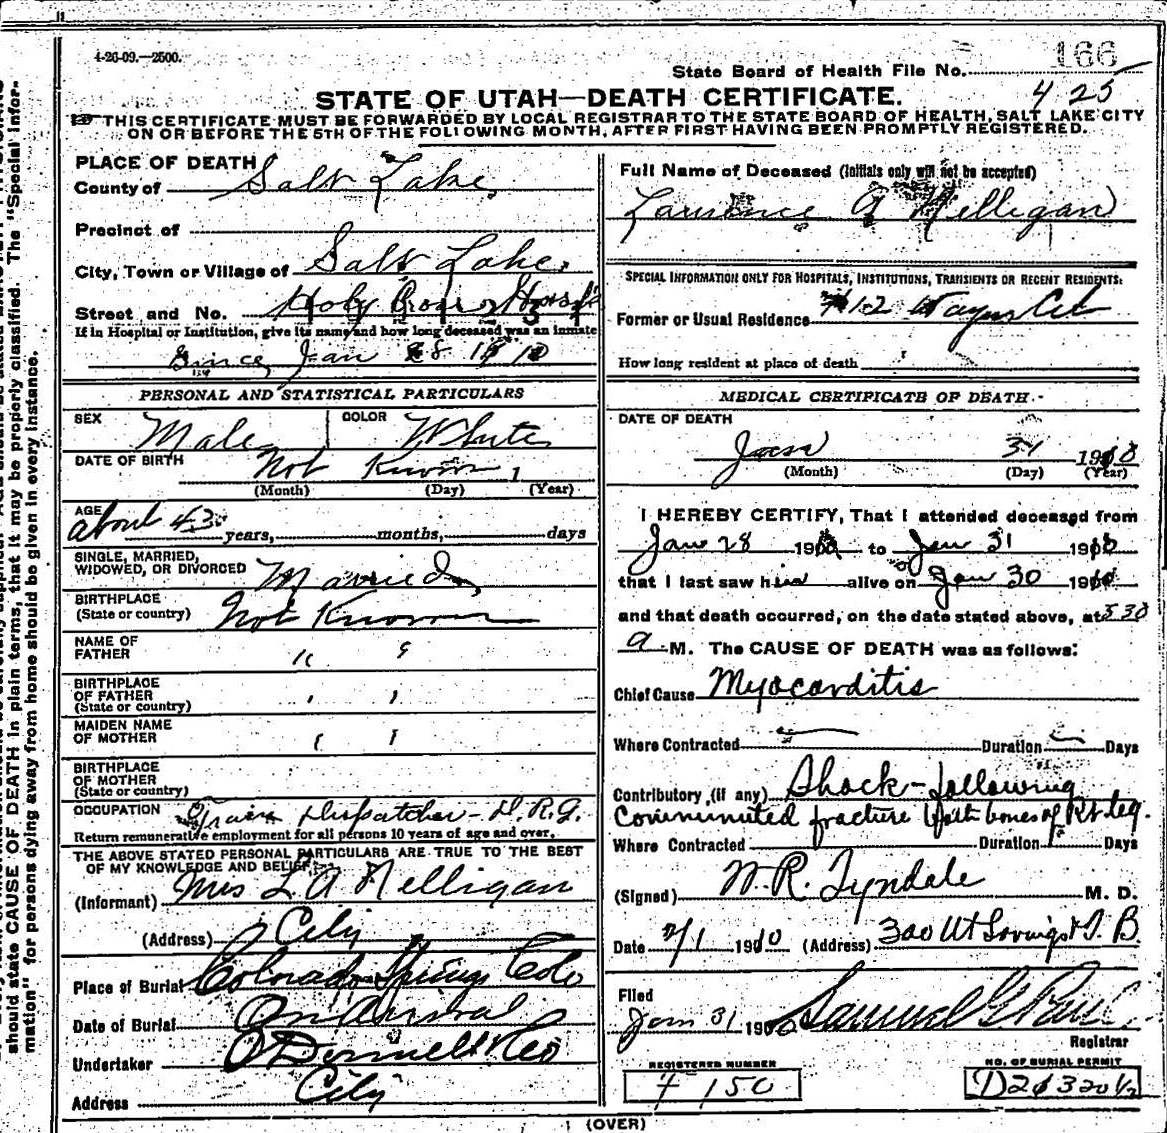 11
4-26-09.—2500.
166
State Board of Health File No.
425
STATE OF UTAH—DEATH CERTIFICATE.
THIS CERTIFICATE MUST BE FORWARDED BY LOCAL REGISTRAR TO THE STATE BOARD OF HEALTH, SALT LAKE CITY
ON OR BEFORE THE 5TH OF THE FOLLOWING MONTH, AFTER FIRST HAVING BEEN PROMPTLY REGISTERED.
PLACE OF DEATH
County of Salt Lake
Precinct of
City, Town or Village of Salt Lake
Street and No. Holy Cross Hosp
If in Hospital or Institution, give its name and how long deceased was an inmate
Since Jan 28 1910
PERSONAL AND STATISTICAL PARTICULARS
SEX Male COLOR White
DATE OF BIRTH Not Known 1
(Month) (Day) (Year)
AGE about 43 years, months, days
SINGLE, MARRIED,
WIDOWED, OR DIVORCED Married
BIRTHPLACE
(State or country) Not Known
NAME OF
FATHER " "
BIRTHPLACE
OF FATHER " "
(State or country)
MAIDEN NAME
OF MOTHER " "
BIRTHPLACE
OF MOTHER
(State or country)
OCCUPATION Train Dispatcher - D. R. G.
Return remunerative employment for all persons 10 years of age and over.
THE ABOVE STATED PERSONAL PARTICULARS ARE TRUE TO THE BEST
OF MY KNOWLEDGE AND BELIEF.
(Informant) Mrs L A Nelligan
(Address) City
Place of Burial Colorado Springs Colo
Date of Burial On Arrival
Undertaker O'Donnell & Co
Address City
Full Name of Deceased (Initials only will not be accepted)
Lawrence A Nelligan
SPECIAL INFORMATION ONLY FOR HOSPITALS, INSTITUTIONS, TRANSIENTS OR RECENT RESIDENTS:
Former or Usual Residence
How long resident at place of death
MEDICAL CERTIFICATE OF DEATH
DATE OF DEATH
Jan 31 1910
(Month) (Day) (Year)
I HEREBY CERTIFY, That I attended deceased from
Jan 28 1910 to Jan 31 1910
that I last saw him alive on Jan 30 1910
and that death occurred, on the date stated above, at 5 30
a M. The CAUSE OF DEATH was as follows:
Chief Cause Myocarditis
Where Contracted Duration Days
Contributory (if any) Shock - following
Comminuted fracture both bones of Rt leg.
Where Contracted Duration Days
(Signed) W. R. Tyndale M. D.
Date 2/1 1910 (Address) 300 Ut Savings & T. B.
Filed
Jan 31 1910 Samuel G Paul
Registrar
REGISTERED NUMBER
150
NO. OF BURIAL PERMIT
(OVER)
should state CAUSE OF DEATH in plain terms, that it may be properly classified. The "Special Infor-
mation" for persons dying away from home should be given in every instance.